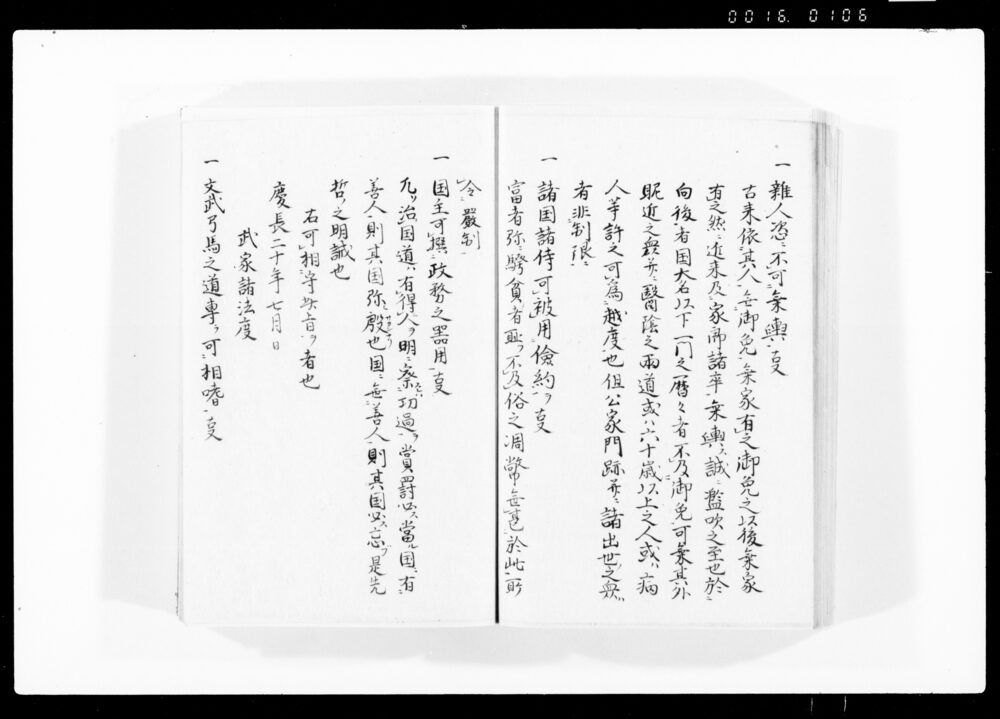 0016. 0106
一 雜人恣ニ不可乗輿事
古来依其人無御免乗家有之御免之以後乗家
有之然ニ近来及家郎諸卒乗輿ス誠ニ濫吹之至也於
向後者国大名以下一門之暦々者不及御免可乗其外
昵近之衆并ニ醫陰之両道或ハ六十歳以上之人或ハ病
人等許之可為越度也但公家門跡并ニ諸出世之衆ハ
者非制限ニ
一 諸国諸侍可被用倹約ヲ事
富者弥ニ驕貧者恥ヲ不及俗之凋幣無甚於此所
令嚴制
一 国主可撰政務之器用事
凡ソ治国道ハ有得人ヲ明ニ察功過ヲ賞罰必ス當ル国ニ有
善人則其国弥殷也国ニ無善人則其国必ス忘フ是先
哲ノ之明誡也
右可相守此旨ヲ者也
慶長二十年七月日
武家諸法度
一 文武弓馬之道專ラ可相嗜事